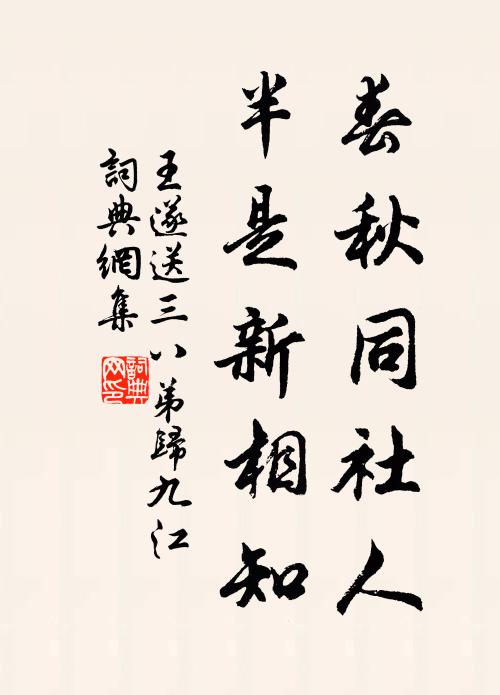 春秋同社人
半是新相知
王遂送三八弟歸九江
詞典網集
詞典網印